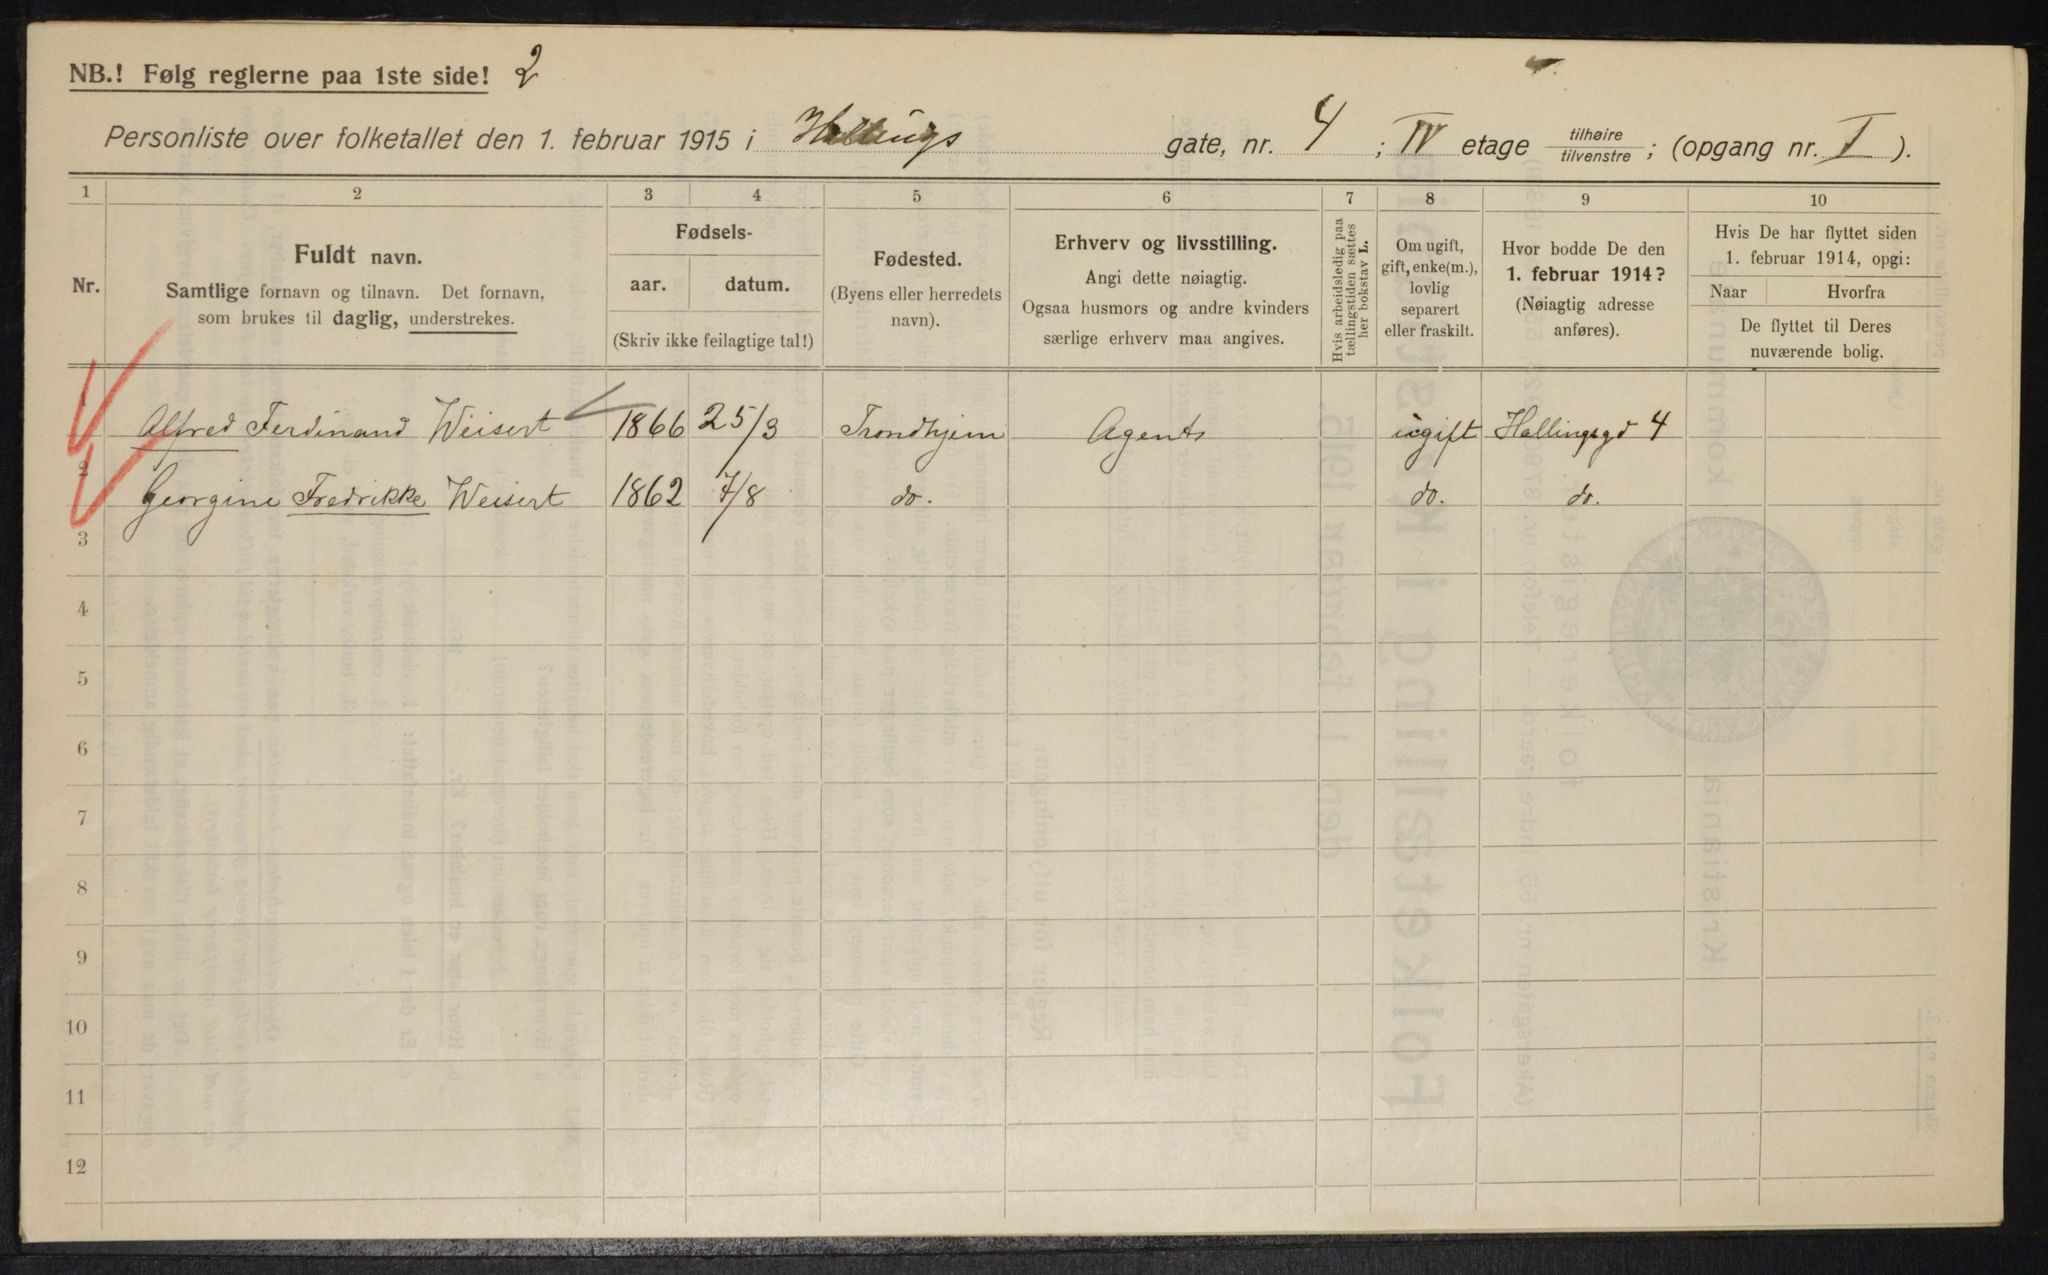 NB.! Følg reglerne paa 1ste side! 2
Personliste over folketallet den 1. februar 1915 i Hallings gate, nr. 4 ; IV etage tilhøire / tilvenstre ; (opgang nr. I ).
1 2 3 4 5 6 7 8 9 10
Nr.
Fuldt navn.
Samtlige fornavn og tilnavn. Det fornavn,
som brukes til daglig, understrekes.
Fødsels-
aar. datum.
(Skriv ikke feilagtige tal!)
Fødested.
(Byens eller herredets
navn).
Erhverv og livsstilling.
Angi dette nøiagtig.
Ogsaa husmors og andre kvinders
særlige erhverv maa angives.
Hvis arbeidsledig paa
tællingstiden sættes
her bokstav L.
Om ugift,
gift, enke(m.),
lovlig
separert
eller fraskilt.
Hvor bodde De den
1. februar 1914?
(Nøiagtig adresse
anføres).
Hvis De har flyttet siden
1. februar 1914, opgi:
Naar Hvorfra
De flyttet til Deres
nuværende bolig.
1 Alfred Ferdinand Weisert 1866 25/3 Trondhjem Agent ugift Hallingsgd 4
2 Georgine Fredrikke Weisert 1862 7/8 do. do. do.
3
4
5
6
7
8
9
10
11
12